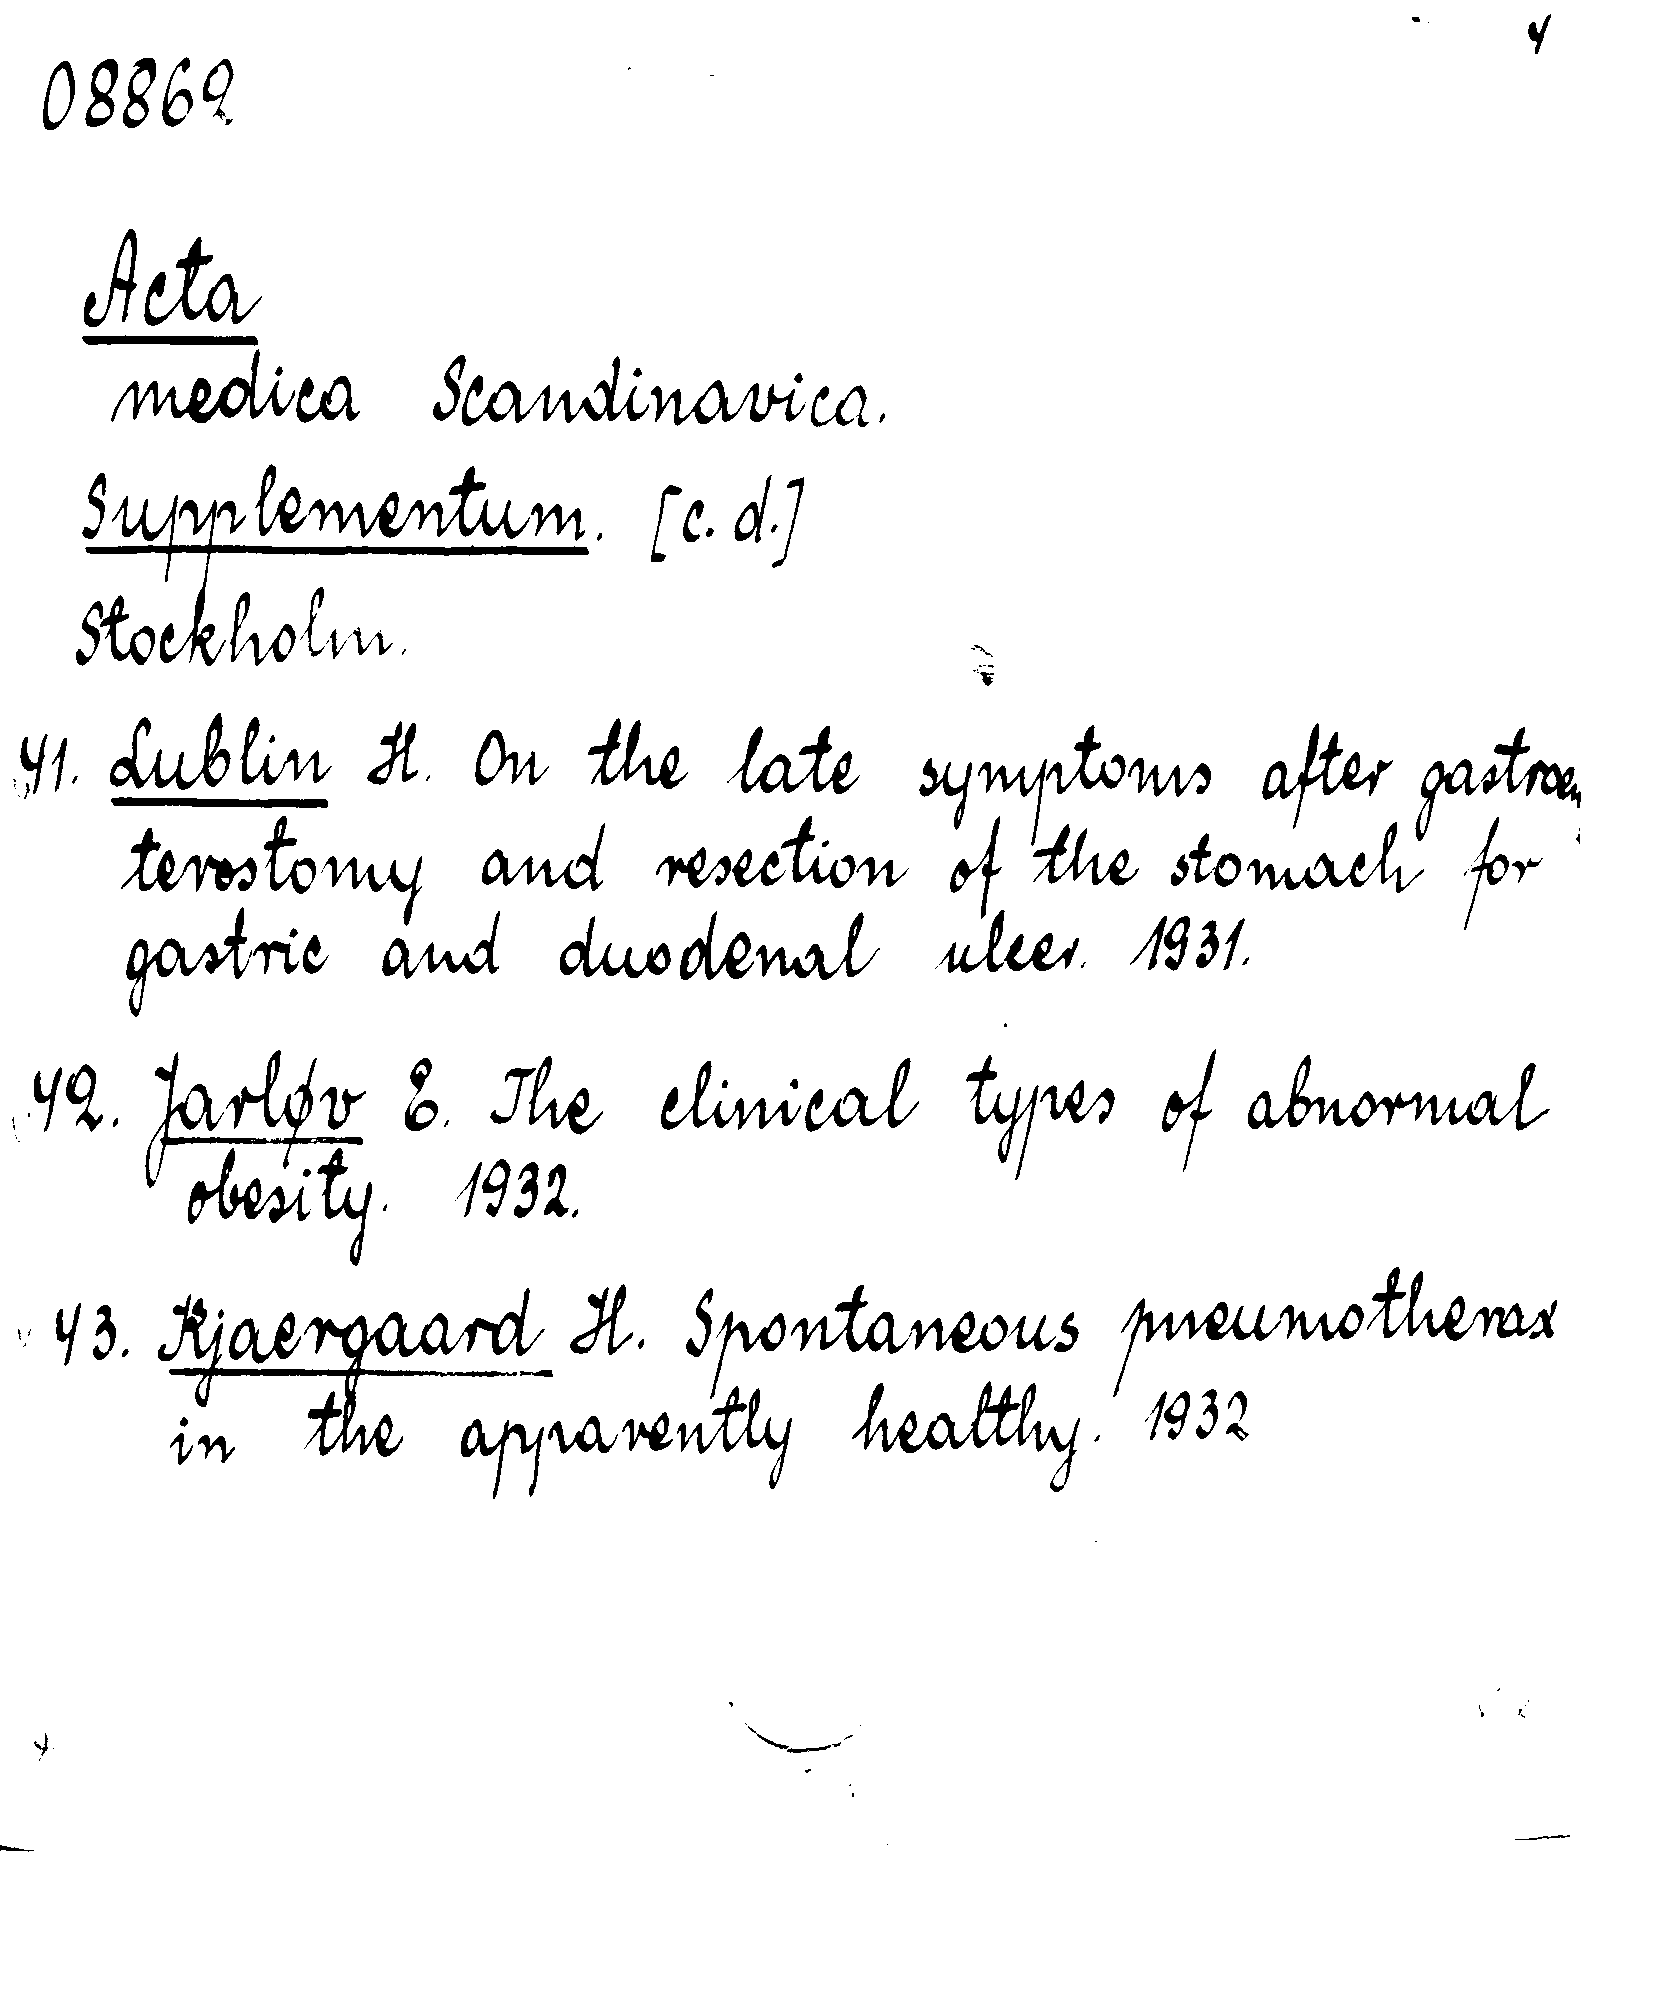 4
08862
Acta
medica Scandinavica.
Supplementum. [c. d.]
Stockholm.
41. Lublin H. On the late symptoms after gastroen
terostomy and resection of the stomach for
gastric and duodenal ulcer. 1931.
42. Jarløv E. The clinical types of abnormal
obesity. 1932.
43. Kjaergaard H. Spontaneous pneumothorax
in the apparently healthy. 1932